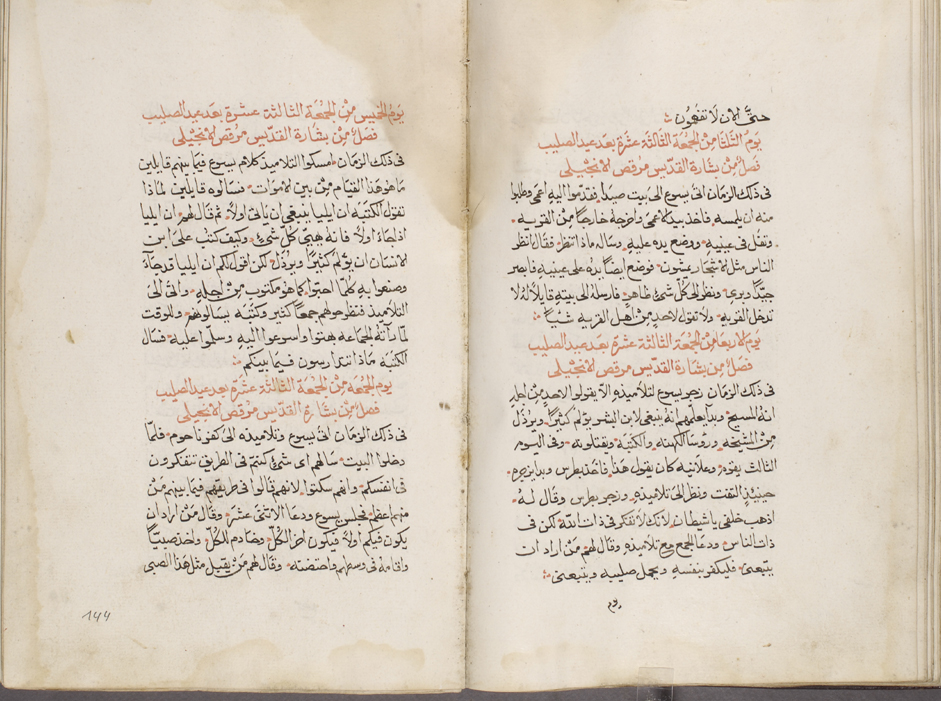 حتى الان لا تفهمون
يوم الثلثا من الجمعة الثالثة عشرة بعد عيد الصليب
فصل من بشارة القديس مرقص الانجيلي
في ذلك الزمان اتى يسوع الى بيت صيدا فقدموا اليه اعمى وطلبوا
منه ان يلمسه فاخذ بيد الاعمى واخرجه خارجًا من القريه
وتفل في عينيه ووضع يده عليه وساله ماذا تنظر فقال انظر
الناس مثل الاشجار يمشون فوضع ايضًا يده على عينيه فابصر
جيدًا وبرى ونظر الى كل شي ظاهر فارسله الى بيته قايلًا له لا
تدخل القريه ولا تقول لاحد من اهل القريه شيًا
يوم الاربعا من الجمعة الثالثة عشرة بعد عيد الصليب
فصل من بشارة القديس مرقص الانجيلي
في ذلك الزمان زجر يسوع لتلاميذه الا يقولوا لاحد من اجله
انه المسيح وبدا يعلمهم انه ينبغي لابن البشر يولم كثيرًا ويرذل
من المشيخه وروسا الكهنه والكتبه ويقتلونه وفي اليوم
الثالث يقوم وعلانيه كان يقول هذا فاخذ بطرس وبدا يزجره
حينيذ التفت ونظر الى تلاميذه وزجر بطرس وقال له
اذهب خلفي يا شيطان لانك لا تفكر في ذات الله لكن في
ذات الناس ودعا الجمع مع تلاميذه وقال لهم من اراد ان
يتبعني فليكفر بنفسه ويحمل صليبه ويتبعني
يوم
يوم الخميس من الجمعة الثالثة عشرة بعد عيد الصليب
فصل من بشارة القديس مرقص الانجيلي
في ذلك الزمان امسكوا التلاميذ كلام يسوع فيما بينهم قايلين
ما هو هذا القيام من بين الاموات فسالوه قايلين لماذا
تقول الكتبه ان ايليا ينبغي ان ياتي اولًا ثم قال لهم ان ايليا
اذا جاء اولًا فانه يهيي كل شي وكيف كتب على ابن
الانسان ان يولم كثيرًا ويرذل لكن اقول لكم ان ايليا قد جاء
وصنعوا به كلما احبوا كما هو مكتوب من اجله واتى الى
التلاميذ فنظر حولهم جمعًا كثير وكتبه يسالوهم وللوقت
لما راته الجماعه بهتوا واسرعوا اليه وسلموا عليه فسال
الكتبه ماذا تتدارسون فيما بينكم
يوم الجمعه من الجمعة الثالثة عشرة بعد عيد الصليب
فصل من بشارة القديس مرقص الانجيلي
في ذلك الزمان اتى يسوع وتلاميذه الى كفرناحوم فلما
دخلوا البيت سالهم اي شي كنتم في الطريق تتفكرون
في انفسكم وانهم سكتوا لانهم قالوا في طريقهم فيما بينهم من
منهم اعظم فجلس يسوع ودعا الاثني عشر وقال من اراد ان
يكون فيكم اولًا فيكون اخر الكل وخادم للكل واخذ صبيًا
واقامه في وسطهم واحتضنه وقال لهم من يقبل مثل هذا الصبي
144